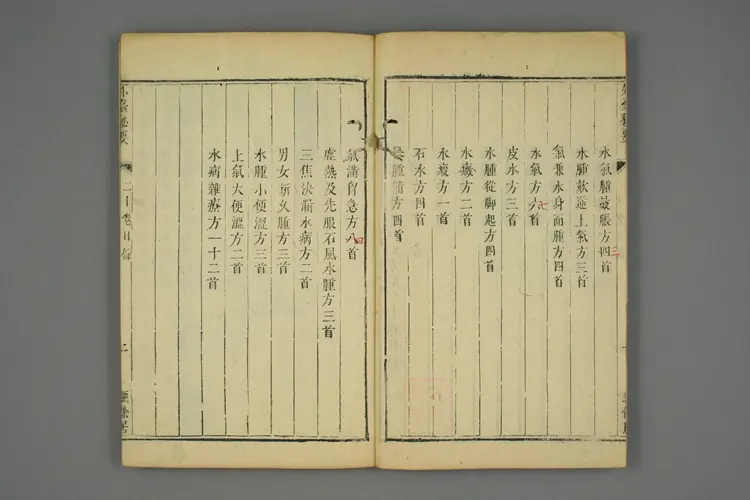 水氣腫鼓脹方四首
三
水腫欬逆上氣方三首
氣兼水身面腫方四首
水氣方六首
七
皮水方三首
水腫從脚起方四首
水癥方二首
水瘕方一首
石水方四首
腫方四首
氣滿胷急方八首
四
虛熱及先服石風水腫方三首
三焦決漏水病方二首
男女新久腫方三首
水腫小便澀方三首
上氣大便澀方二首
水病雜療方一十二首
外臺秘要
二十卷目錄
二
經餘居